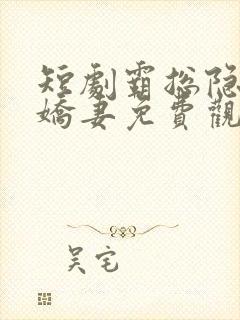 短劇霸總隐
嬌妻免費觀
吴宅